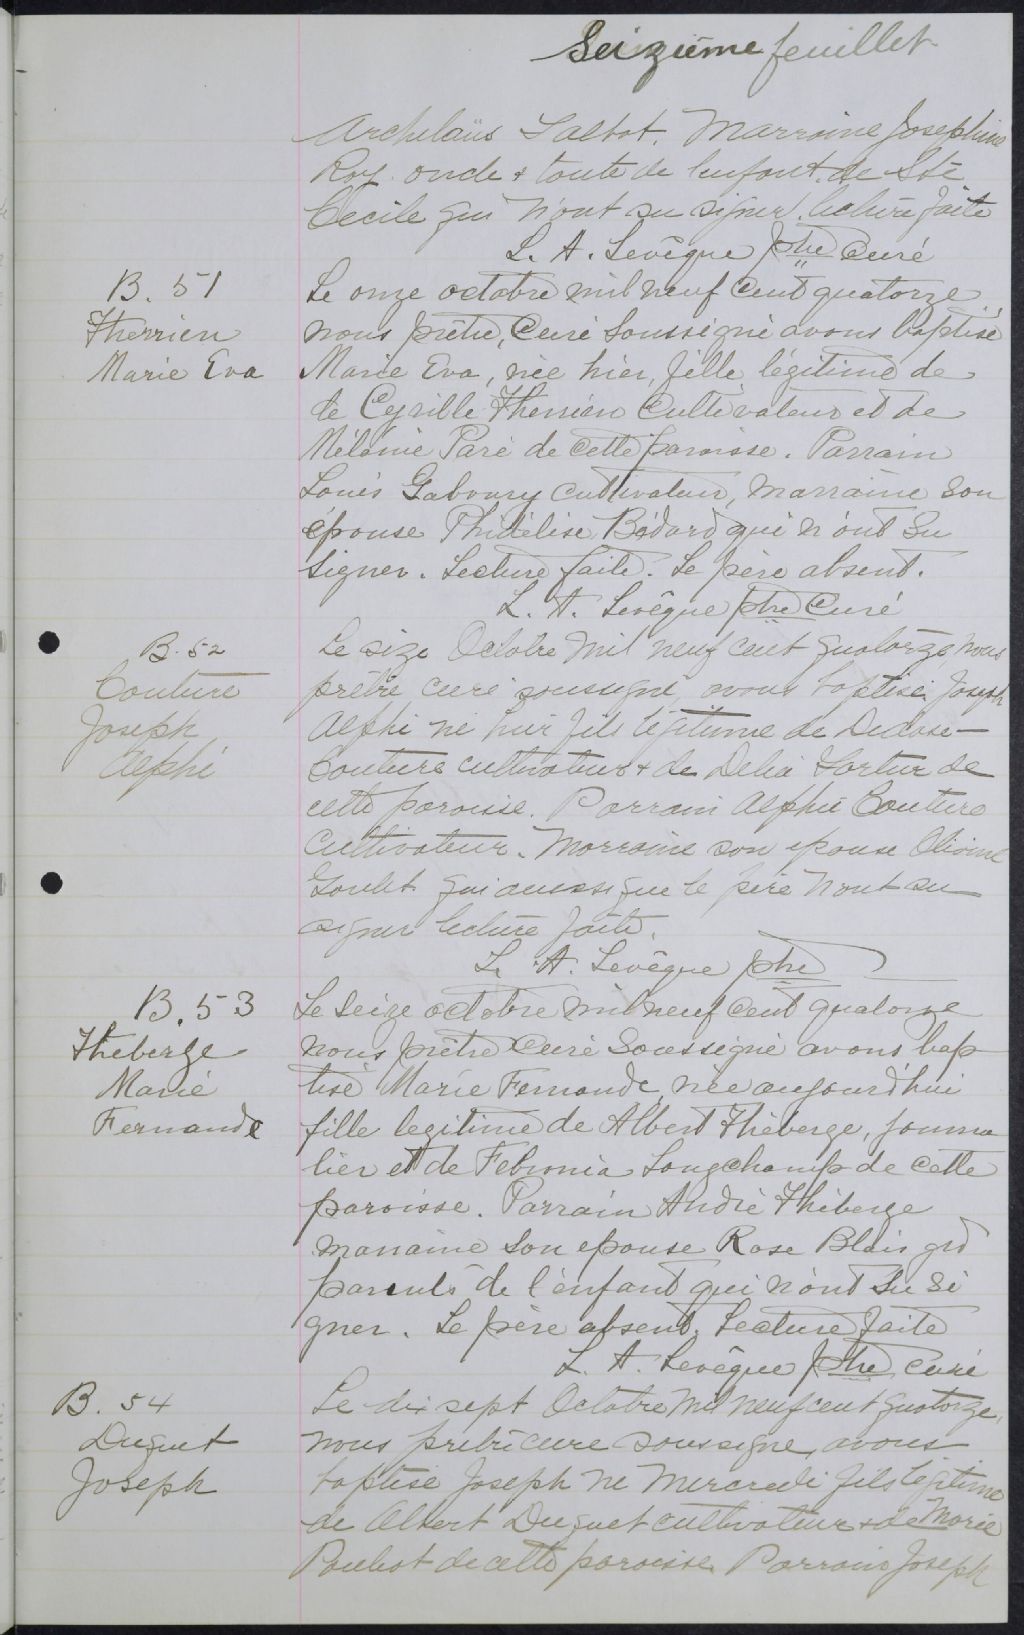 Seizième feuillet
Archelaüs Talbot. Marraine Josephine
Roy. oncle & tante de l'enfant. de Ste
Cecile qui n'ont su signer. lecture faite
L. A. Levêque ptre Curé
B. 51
Therrien
Marie Eva
Le onze octobre mil neuf cent quatorze
nous prêtre, Curé Soussigné avons baptisé
Marie Eva, née hier, fille légitime de
de Cyrille Therrien Cultivateur et de
Mélanie Paré de cette paroisse. Parrain
Louis Gaboury cultivateur, marraine son
épouse Phidélise Bédard qui n'ont su
signer. Lecture faite. Le père absent.
L. A. Levêque ptre Curé
B. 52
Couture
Joseph
Alphé
Le seize Octobre mil neuf cent quatorze, nous
prêtre curé soussigné, avons baptisé Joseph
Alphé né hier fils légitime de
Couture cultivateur & de Delia Fortier de
cette paroisse. Parrain Alphé Couture
Cultivateur. Marraine son epouse
Goulet qui aussi que le père n'ont su
signer lecture faite.
L. A. Levêque ptre
B. 53
Theberge
Marie
Fernande
Le Seize octobre mil neuf cent quatorze
nous prêtre Curé Soussigné avons bap
tisé Marie Fernande, née aujourd'hui
fille legitime de Albert Théberge, journa
lier et de Febronia Longchamp de cette
paroisse. Parrain André Théberge
marraine son epouse Rose Blais grd
parents de l'enfant qui n'ont su si
gner. Le père absent. Lecture faite
L. A. Levêque ptre curé
B. 54
Duguet
Joseph
Le dix sept Octobre mil neuf cent quatorze,
nous pretre cure soussigne, avons
baptise Joseph ne mercredi fils légitime
de Albert Duguet cultivateur & de Marie
Pouliot de cette paroisse Parrain Joseph